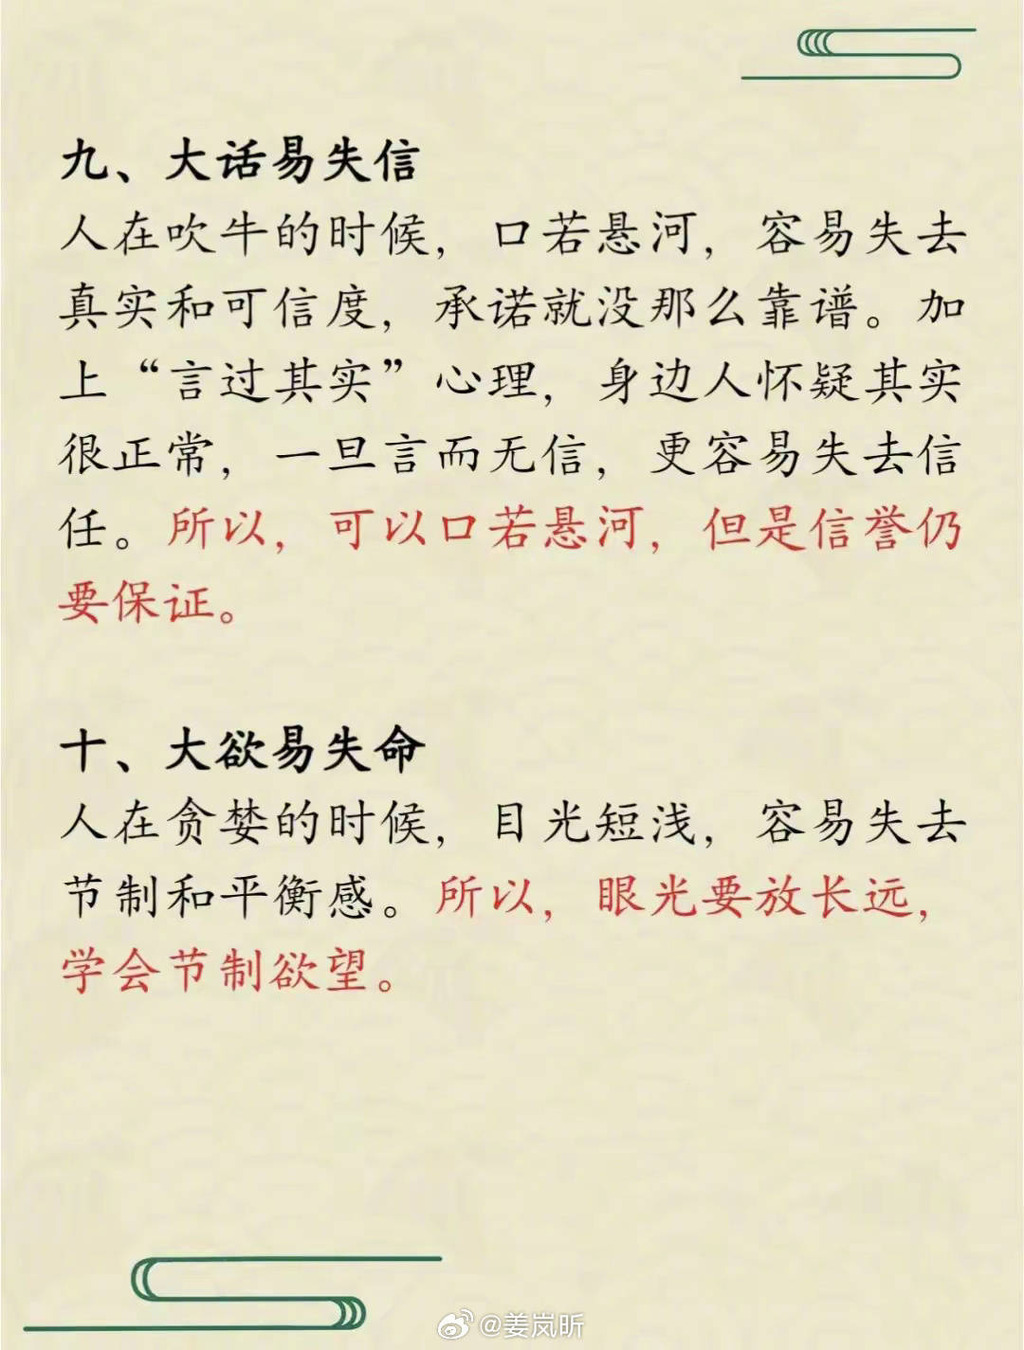 九、大话易失信
人在吹牛的时候，口若悬河，容易失去
真实和可信度，承诺就没那么靠谱。加
上“言过其实”心理，身边人怀疑其实
很正常，一旦言而无信，更容易失去信
任。所以，可以口若悬河，但是信誉仍
要保证。
十、大欲易失命
人在贪婪的时候，目光短浅，容易失去
节制和平衡感。所以，眼光要放长远，
学会节制欲望。
@姜岚昕